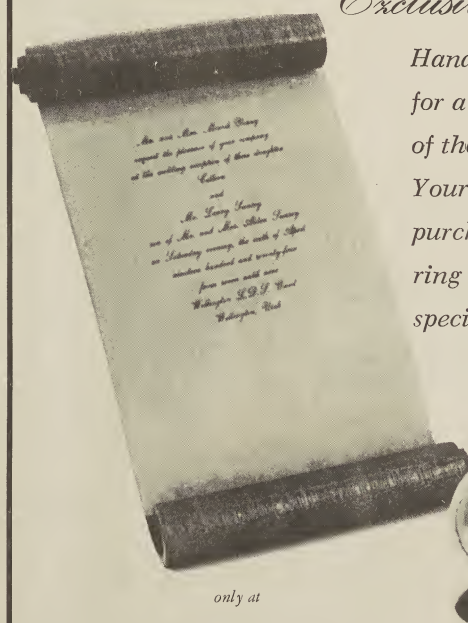 Exclusi
Hand
for a
of the
Your
purch
ring
speci
Mr. and Mrs.
request the pleasure of your company
at the wedding reception of their daughter
and
Mr. Larry
son of Mr. and Mrs.
on Saturday evening, the sixth of April
nineteen hundred and seventy-four
from seven until nine
Wellington L.D.S. Ward
Wellington, Utah
only at